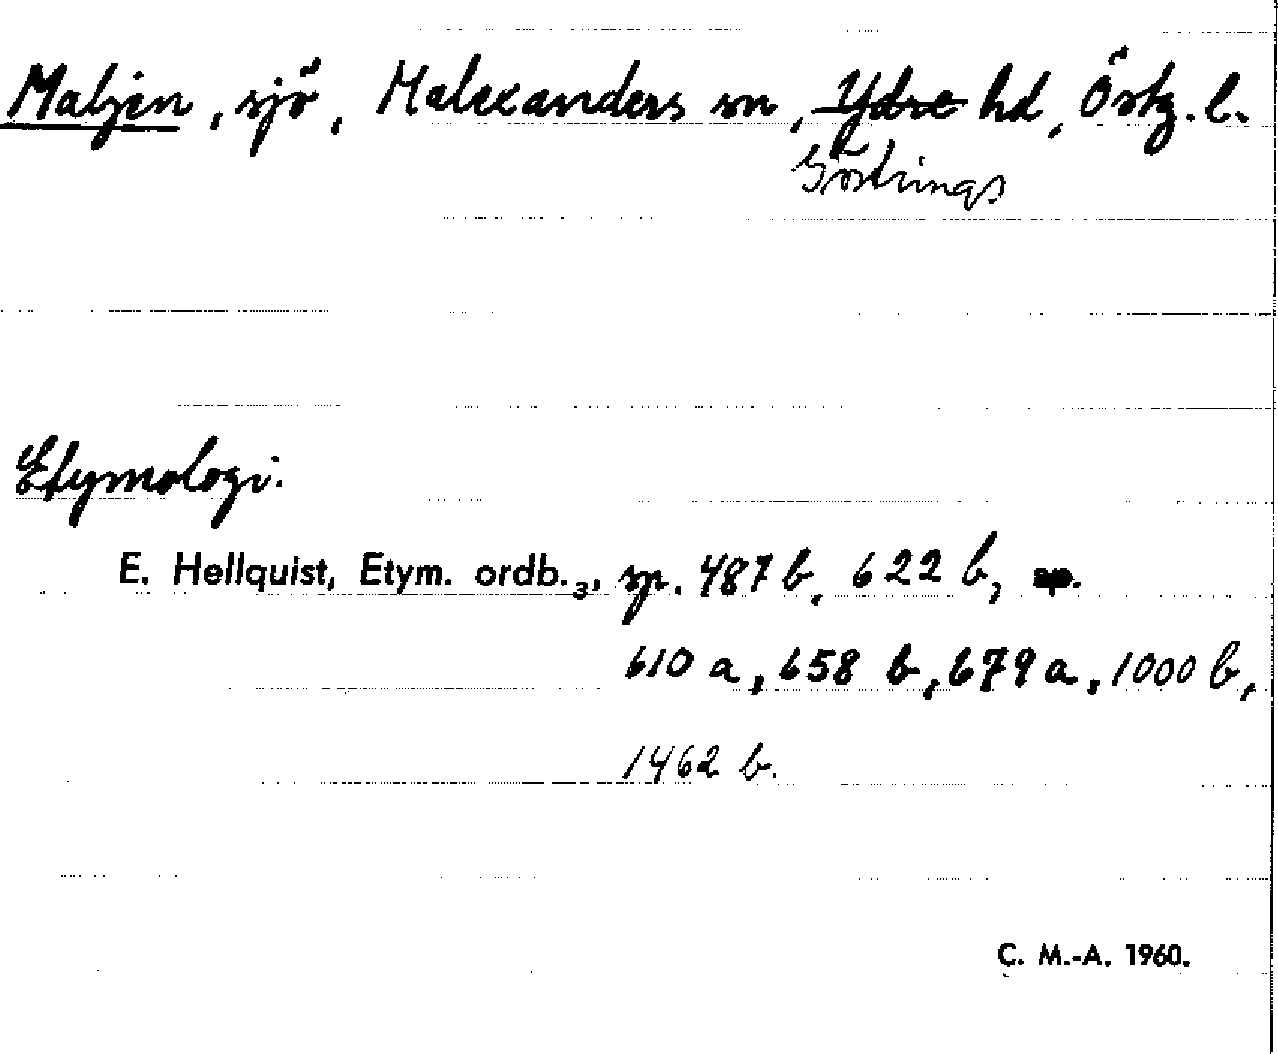 Maljen, sjö, Malexanders sn, Ydre hd, Östg. l.
Göstrings
Etymologi.
E. Hellquist, Etym. ordb.3, sp. 487 b, 622 b, sp.
610 a, 658 b, 679 a, 1000 b,
1462 b.
C. M.-A. 1960.